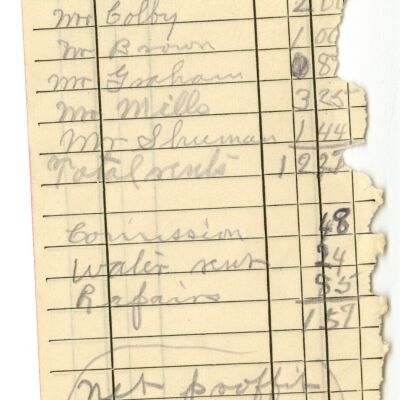 Mr Colby 2 00
Mr Brown 1 00
Mr Graham 8
Mr Mills 3 25
Mr Shuman 1 44
Total rents 12 27
Comission 48
Water rent 24
Repairs 85
1 57
Net proffit